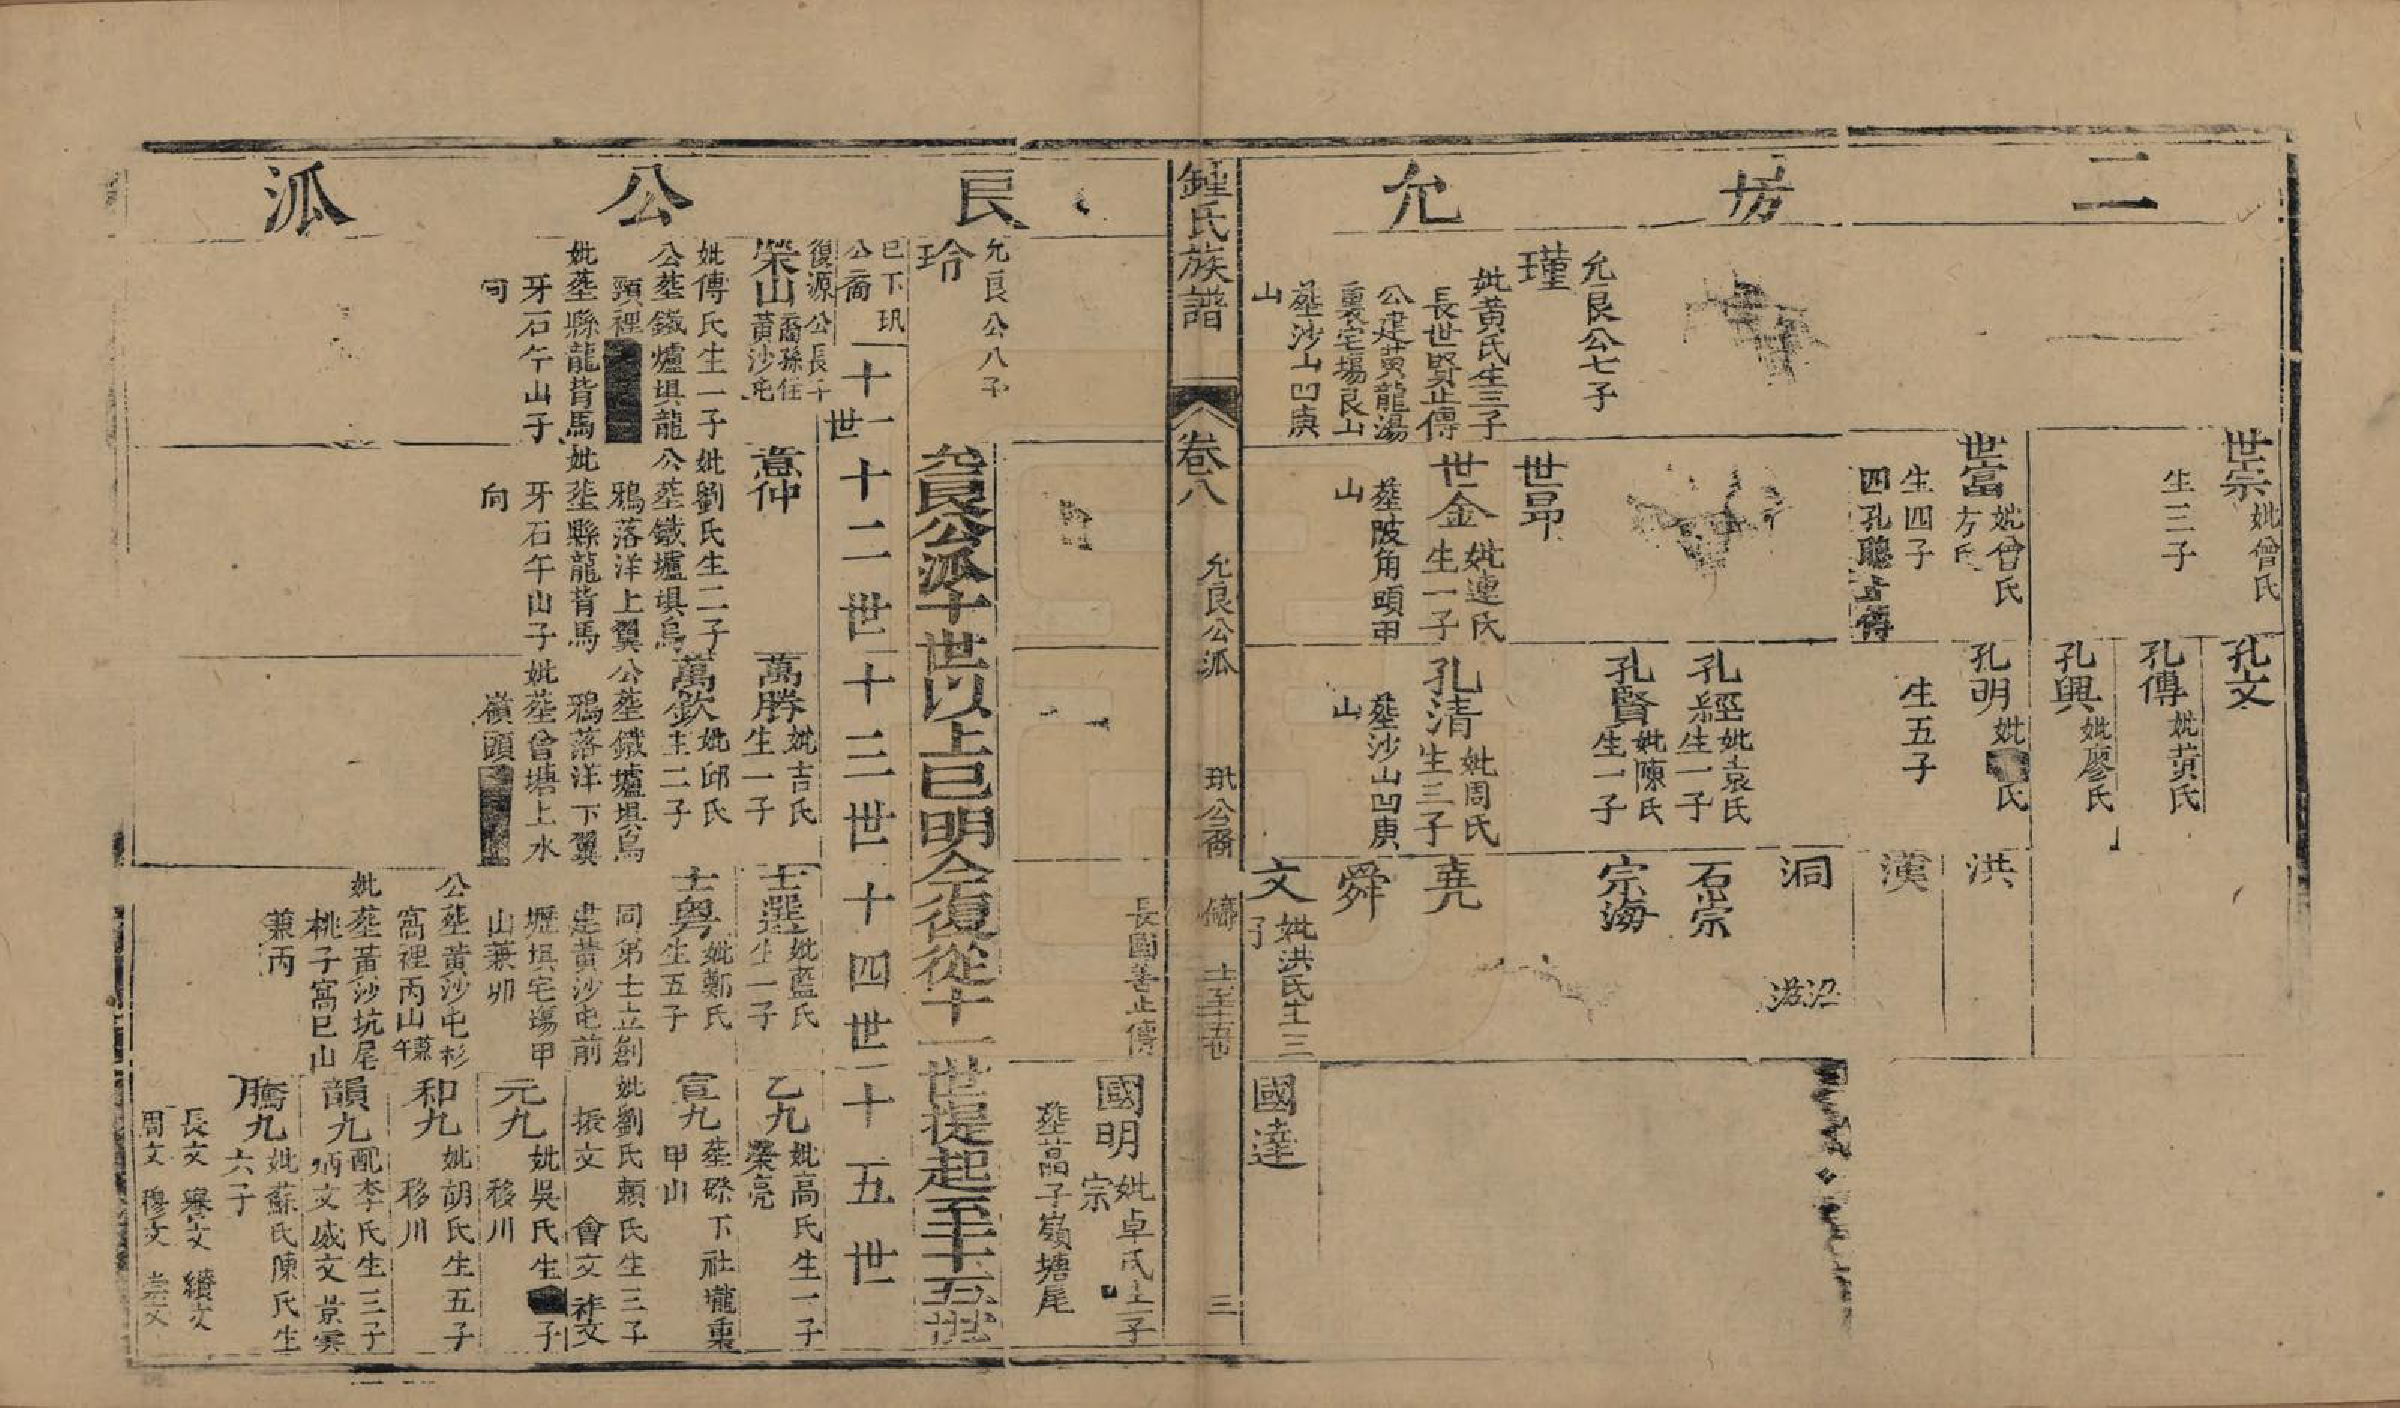 二
坊
允
世宗
妣曾氏
生三子
世富
妣曾氏
方氏
生四子
四孔聽止傳
孔文
孔傳
妣黃氏
孔興
妣廖氏
孔明
妣
氏
生五子
洪
漢
洞
沼
游
允良公七子
瑾
妣黃氏生三子
長世賢止傳
公建黃龍湯
裏宅塲艮山
塟沙山凹庚
山
世昂
世金
妣連氏
生一子
塟陂角頭甲
山
孔經
妣袁氏
生一子
孔賢
妣陳氏
生一子
孔清
妣周氏
生三子
塟沙山凹庚
山
石崇
宗海
堯
舜
文
妣洪氏生三
子
國達
鍾氏族譜
卷八
允良公派
玑公裔
三
良
公
派
長國善止傳
國明
妣卓氏生子
宗
塟菖子嶺塘尾
允良公八子
玲
允良公派十世以上已明今復從十一世提起至十五世
已下玑
公裔
十一世
十二世
十三世
十四世
十五世
復源公長子
榮山
裔孫住
黃沙屯
妣傅氏生一子
公塟鐵爐埧龍
頸裡
妣塟縣龍背馬
牙石午山子
向
意仲
妣劉氏生二子
公塟鐵壚埧烏
鴉落洋上翼
妣塟縣龍背馬
牙石午山子
向
萬勝
妣吉氏
生一子
萬欽
妣邱氏
生二子
公塟鐵壚埧烏
鴉落洋下翼
妣塟曾塘上水
嶺頭
士選
妣藍氏
生一子
士粤
妣鄭氏
生五子
同弟士立創
建黃沙屯前
壢埧宅塲甲
山兼卯
公塟黃沙屯杉
窩裡丙山兼
午
妣塟黃沙坑尾
桃子窩巳山
兼丙
乙九
妣高氏生一子
榮亮
宣九
塟磜下社壠東
甲山
妣劉氏賴氏生三子
振文
會文
祚文
元九
妣吳氏生
子
移川
和九
妣胡氏生五子
移川
韻九
配李氏生三子
炳文
威文
景雲
騰九
妣蘇氏陳氏生
六子
長文
騫文
續文
周文
穆文
崇文